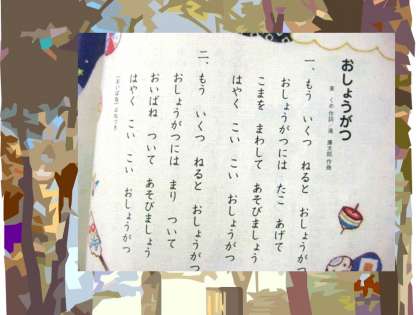 おしょうがつ
東 くめ 作詞/滝 廉太郎 作曲
一、もう いくつ ねると おしょうがつ
おしょうがつには たこ あげて
こまを まわして あそびましょう
はやく こい こい おしょうがつ
二、もう いくつ ねると おしょうがつ
おしょうがつには まり ついて
おいばね ついて あそびましょう
はやく こい こい おしょうがつ